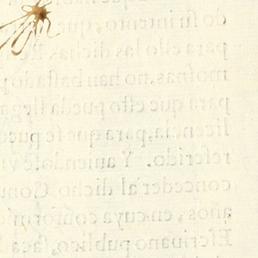 do ſu intento, que
para ello las dichas Re
moſnas, no han baſtado p
para que eſto pueda llega
licencia, para que ſe pued
referido. Y auiendoſe vi
conceder al dicho Conu
años, en cuya conformi
Eſcriuano publico, ſaca